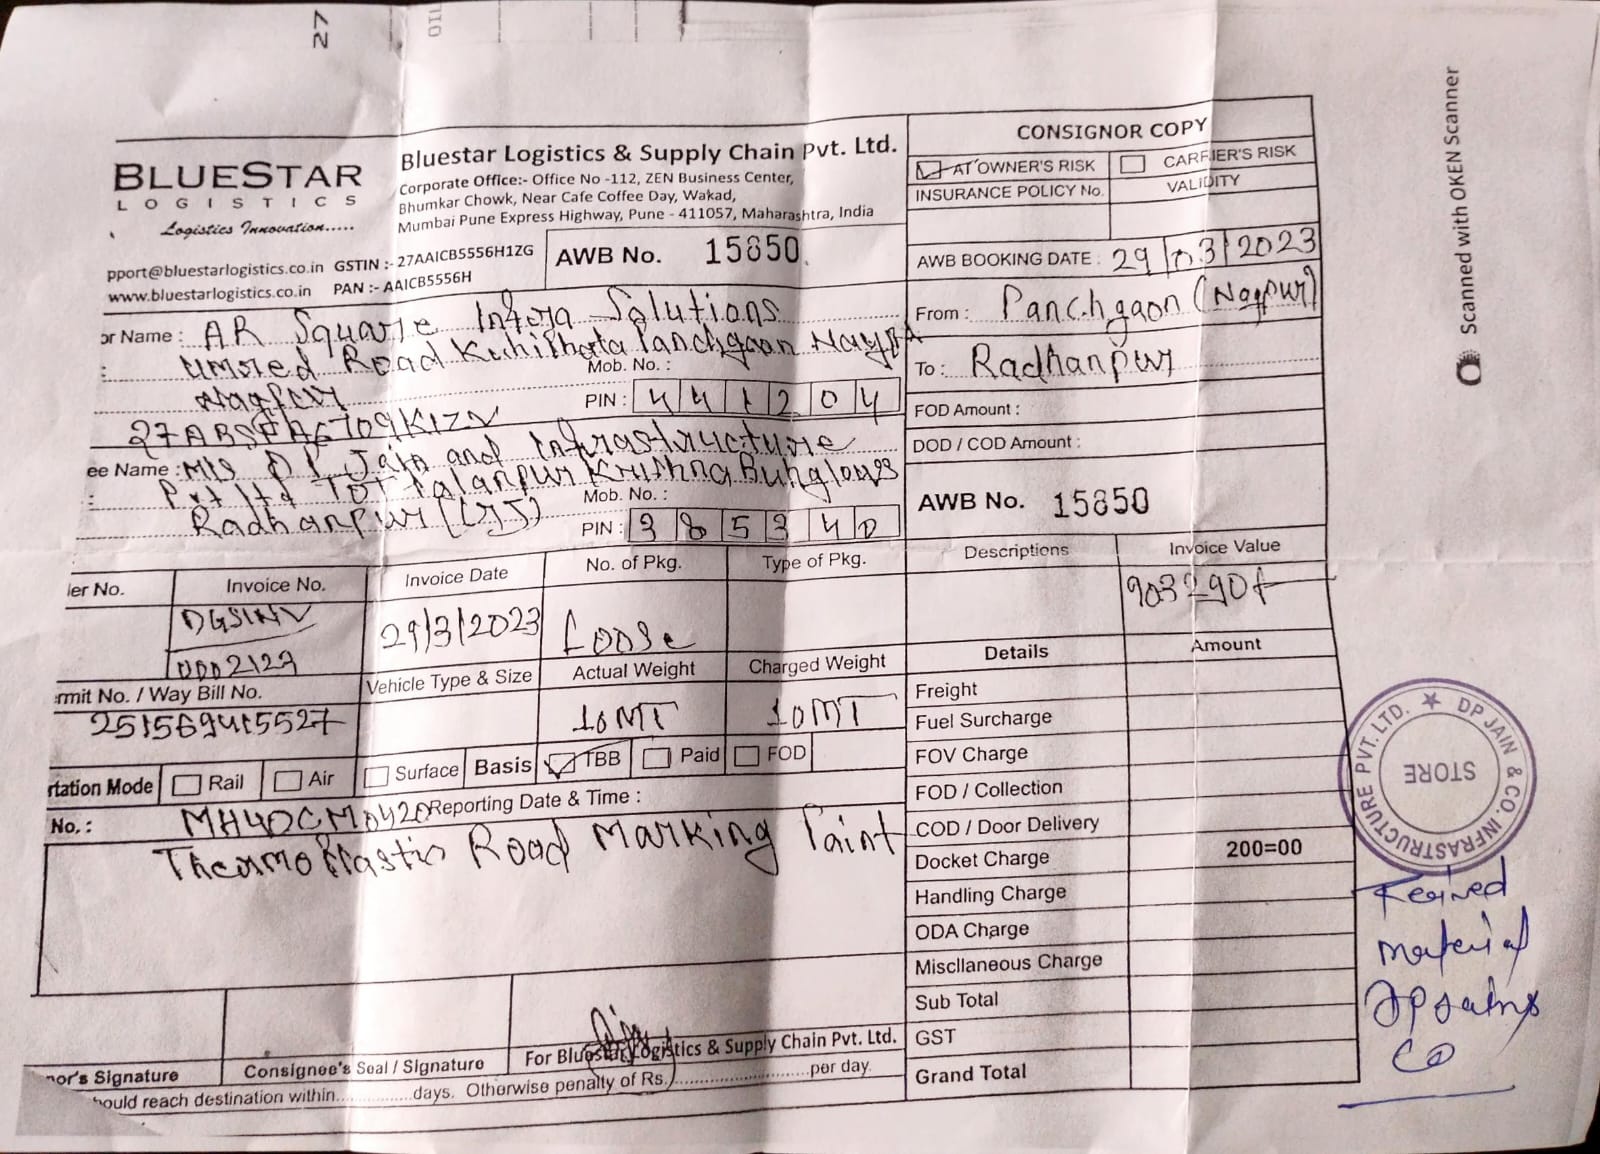 27
BLUESTAR
LOGISTICS
Logistics Innovation.....
pport@bluestarlogistics.co.in GSTIN :- 27AAICB5556H1ZG
www.bluestarlogistics.co.in PAN :- AAICB5556H
Bluestar Logistics & Supply Chain Pvt. Ltd.
Corporate Office:- Office No -112, ZEN Business Center,
Bhumkar Chowk, Near Cafe Coffee Day, Wakad,
Mumbai Pune Express Highway, Pune - 411057, Maharashtra, India
AWB No. 15850
CONSIGNOR COPY
AT OWNER'S RISK CARRIER'S RISK
INSURANCE POLICY No. VALIDITY
AWB BOOKING DATE : 29/03/2023
From : Panchgaon (Nagpur)
To : Radhanpur
FOD Amount :
DOD / COD Amount :
AWB No. 15850
or Name : AR Square Infra Solutions
: Umred Road Kuhi Panchgaon
Mob. No. :
Nagpur
PIN : 441204
ee Name : M/S D P Jain and Infrastructure
: Pvt ltd Palanpur Krishna Bunglows
Mob. No. :
Radhanpur (GJ)
PIN : 385340
ler No. Invoice No. Invoice Date No. of Pkg. Type of Pkg. Descriptions Invoice Value
DGSINV 29/3/2023 Loose 903290/-
0002129
ermit No. / Way Bill No. Vehicle Type & Size Actual Weight Charged Weight
251569415527 10MT 10MT
rtation Mode Rail Air Surface Basis TBB Paid FOD
No. : MH40CM0420 Reporting Date & Time :
Thermoplastic Road Marking Paint
Details Amount
Freight
Fuel Surcharge
FOV Charge
FOD / Collection
COD / Door Delivery
Docket Charge 200=00
Handling Charge
ODA Charge
Miscllaneous Charge
Sub Total
GST
Grand Total
nor's Signature Consignee's Seal / Signature For Bluestar Logistics & Supply Chain Pvt. Ltd.
ould reach destination within...............days. Otherwise penalty of Rs...............................per day.
DP JAIN & CO. INFRASTRUCTURE PVT. LTD.
STORE
Recived
material
DP Jain &
Co
Scanned with OKEN Scanner